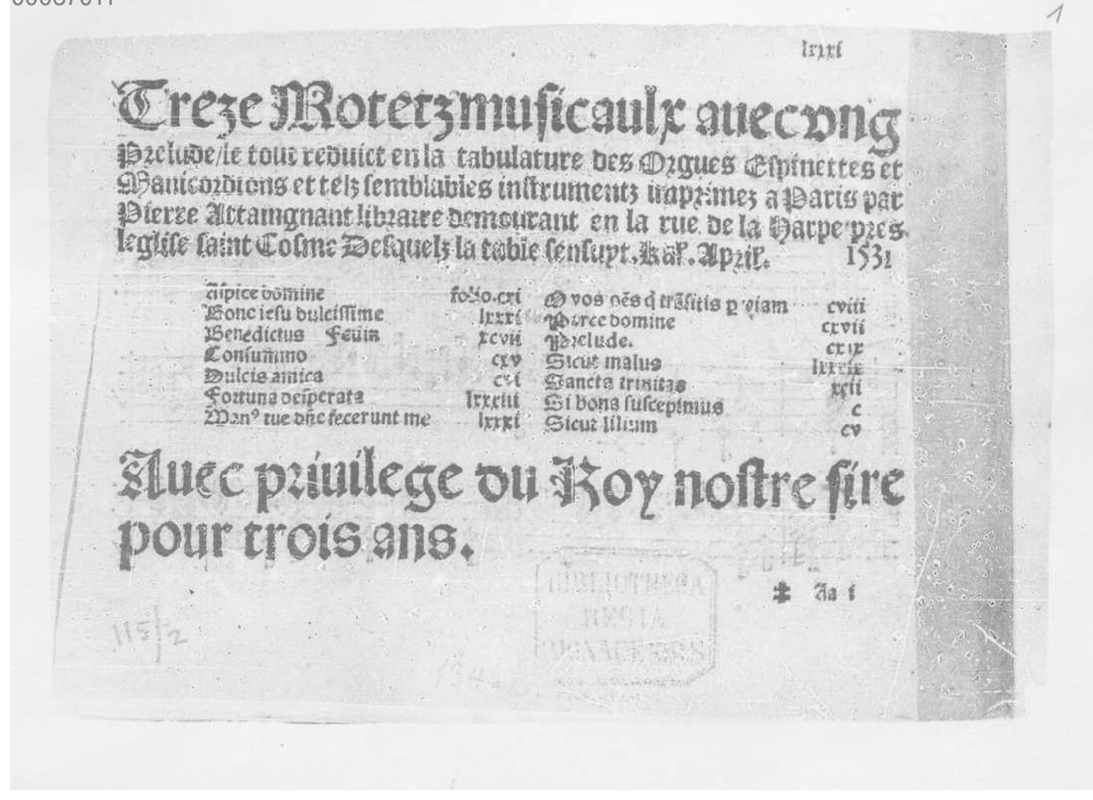 1
lxxxi
Treze Motetz musicaulx auec vng
Prelude/le tout reduict en la tabulature des Orgues Espinettes et
Manicordions et telz semblables instrumentz imprimez a Paris par
Pierre Attaingnant libraire demourant en la rue de la Harpe pres
leglise saint Cosme Desquelz la table sensuyt. kal. April. 1531
Aspice domine folio.cxi
Bone iesu dulcissime lxxxi
Benedictus Feuin xcvii
Consummo cxv
Dulcis amica
Fortuna desperata lxxxiiii
Man⁹ tue dñe fecerunt me lxxxi
O vos oẽs q̃ trãsitis p viam cviii
Parce domine cxvii
Prelude. cxix
Sicut malus lxxxix
Sancta trinitas xcii
Si bona suscepimus c
Sicut lilium cv
Auec priuilege du Roy nostre sire
pour trois ans.
✠ Aa i
115/2
BIBLIOTHECA
REGIA
MONACENSIS